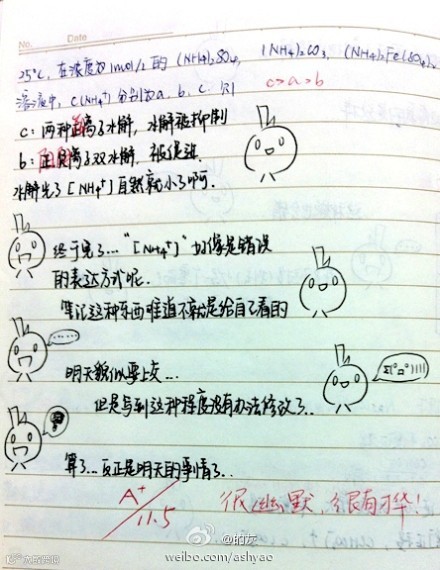 No. Date
25℃, 在浓度为 1mol/L 的 (NH4)2SO4, (NH4)2CO3, (NH4)2Fe(SO4)2
溶液中, c(NH4+) 分别为 a. b. c. 则 c>a>b
c: 两种离子水解, 水解被抑制
b: 离子双水解, 被促进.
水解完了 [NH4+] 自然就小了啊.
终于完了... "[NH4+]" 好像是错误
的表达方式呢.
笔记这种东西难道不就是给自己看的
......
明天貌似要上交...
但是写到这种程度没有办法修改了..
Σ(°Д°)!!!!
算了... 反正是明天的事情了..
A+
11.5
很幽默, 很有才华!
@帕灰
weibo.com/ashyao